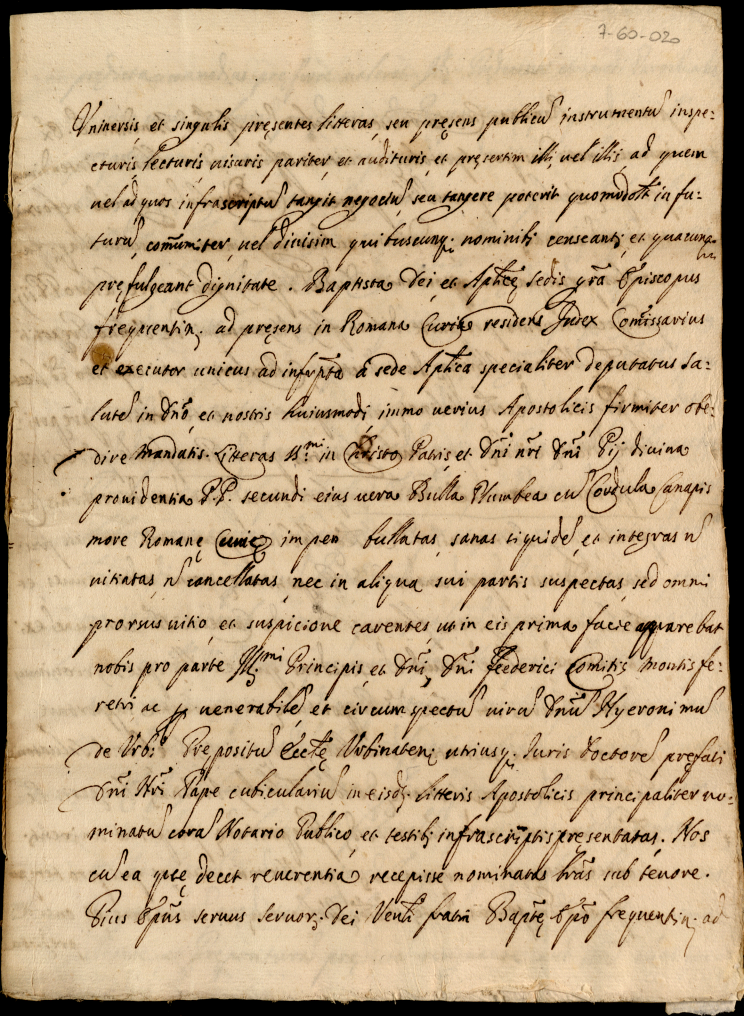 7-60-020
Uniuersis et singulis pręsentes litteras seu pręsens publicũ instrumentũ inspe-
cturis lecturis uisuris pariter et audituris, et pręsertim illi, uel illis ad quem
uel ad quos infrascriptũ tangit negociũ seu tangere poterit quomodolt in fu-
turũ, com̃uniter, uel diuisim quibuscunq; nominib; censeant; et quacunq;
pręfulgeant dignitate. Baptista Dei, et Aplicę sedis gr̃a Ep̃iscopus
ferentin; ad pręsens in Romana Curia residens Judex Com̃issarius
et executor unicus ad infrãpta à sede Apl̃ica specialiter deputatus sa-
lutẽ in Dñō, et nostris huiusmodi, immo uerius Apostolicis firmiter obe-
dire mandatis. Literas SS.mi in Christo Patris et Dñi nr̃i Dñi Pij diuina
prouidentia P.P. secundi eius uera Bulla Plumbea cũ Cordula Canapis
more Romanę Curię impen bullatas, sanas siquidẽ, et integras ñ
uitiatas, ñ cancellatas, nec in aliqua sui partis suspectas, sed omni
prorsus uitio, et suspicione carentes, ut in eis prima facie apparebat
nobis pro parte Ill.mi Principis, et Dñi, Dñi Federici Comitis Montisfe-
retri ac p uenerabilẽ, et circumspectũ uirũ Dñũ Hyeronimũ
de Urb: Prępositũ Eccl̃ę Urbinaten; utriusq; Iuris doctorẽ pręfati
Dñi Nr̃i Papę cubiculariũ in eisd; litteris Apostolicis principaliter no-
minatũ corã Notario Publico, et testib; infrascriptis pręsentatas. Nos
cũ ea qua decet reuerentia recepisse nominatas lr̃as sub tenore.
Pius Ep̃us seruus seruor; Dei Venl̃i fratri Baptę Ep̃o ferentin; ad